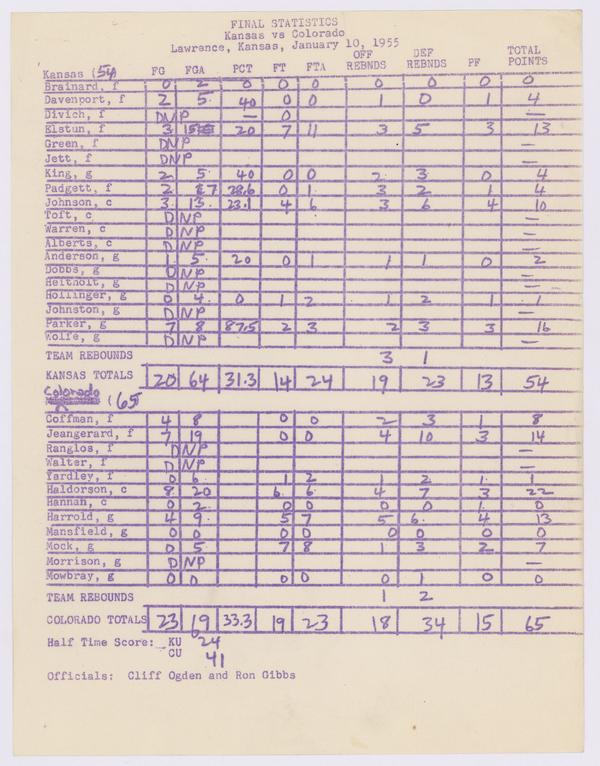 FINAL STATISTICS
Kansas vs Colorado
Lawrence, Kansas, January 10, 1955
Kansas (54) FG FGA PCT FT FTA OFF REBNDS DEF REBNDS PF TOTAL POINTS
Brainard, f 0 2 0 0 0 0 0 0 0
Davenport, f 2 5 40 0 0 1 0 1 4
Divich, f DNP — 0 —
Elstun, f 3 15 20 7 11 3 5 3 13
Green, f DNP —
Jett, f DNP —
King, g 2 5 40 0 0 2 3 0 4
Padgett, f 2 7 28.6 0 1 3 2 1 4
Johnson, c 3 13 23.1 4 6 3 6 4 10
Toft, c DNP —
Warren, c DNP —
Alberts, c DNP —
Anderson, g 1 5 20 0 1 1 1 0 2
Dobbs, g DNP —
Heitholt, g DNP —
Hollinger, g 0 4 0 1 2 1 2 1 1
Johnston, g DNP —
Parker, g 7 8 87.5 2 3 2 3 3 16
Wolfe, g DNP —
TEAM REBOUNDS 3 1
KANSAS TOTALS 20 64 31.3 14 24 19 23 13 54
Colorado (65
Coffman, f 4 8 0 0 2 3 1 8
Jeangerard, f 7 19 0 0 4 10 3 14
Ranglos, f DNP —
Walter, f DNP —
Yardley, f 0 6 1 2 1 2 1 1
Haldorson, c 8 20 6 6 4 7 3 22
Hannah, c 0 2 0 0 0 0 1 0
Harrold, g 4 9 5 7 5 6 4 13
Mansfield, g 0 0 0 0 0 0 0 0
Mock, g 0 5 7 8 1 3 2 7
Morrison, g DNP —
Mowbray, g 0 0 0 0 0 1 0 0
TEAM REBOUNDS 1 2
COLORADO TOTALS 23 33.3 19 23 18 34 15 65
Half Time Score: KU 24
CU 41
Officials: Cliff Ogden and Ron Gibbs